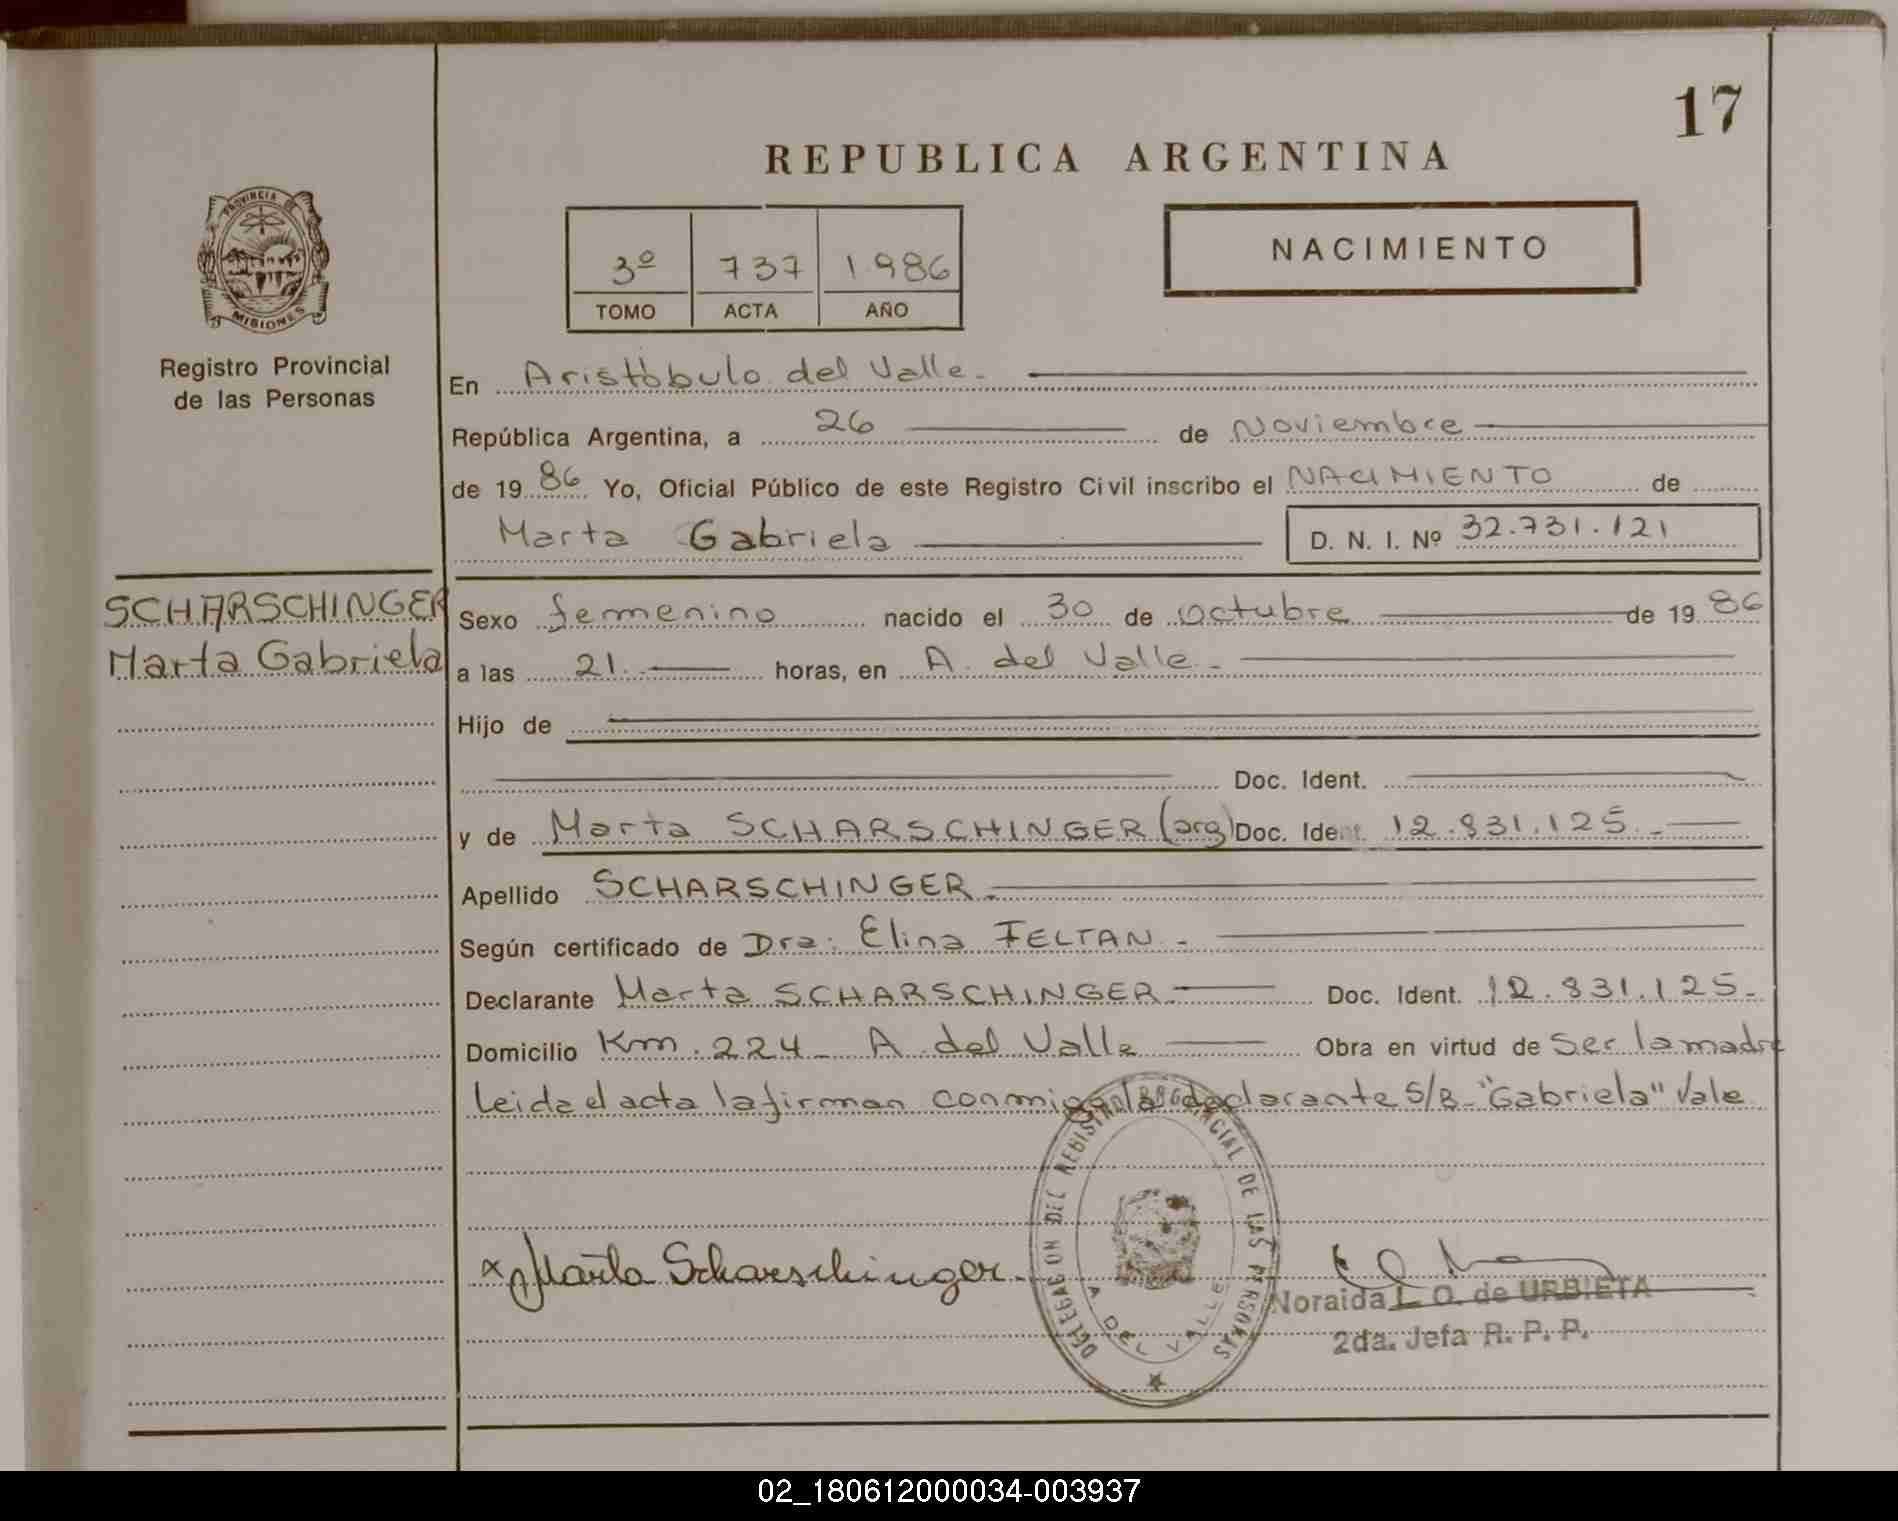 17
REPUBLICA ARGENTINA
PROVINCIA DE
MISIONES
Registro Provincial
de las Personas
3º 737 1.986
TOMO ACTA AÑO
NACIMIENTO
En Aristóbulo del Valle.-
República Argentina, a 26 de Noviembre
de 1986 Yo, Oficial Público de este Registro Civil inscribo el NACIMIENTO de
Marta Gabriela D. N. I. Nº 32.731.121
SCHARSCHINGER
Marta Gabriela
Sexo femenino nacido el 30 de octubre de 1986
a las 21.- horas, en A. del Valle.-
Hijo de
Doc. Ident.
y de Marta SCHARSCHINGER (arg) Doc. Ident. 12.831.125.-
Apellido SCHARSCHINGER.-
Según certificado de Dra: Elina FELTAN.-
Declarante Marta SCHARSCHINGER.- Doc. Ident. 12.831.125.-
Domicilio Km. 224- A. del Valle Obra en virtud de Ser la madre
leida el acta la firman conmigo la declarante S/B-"Gabriela" Vale
DELEGACION DEL REGISTRO PROVINCIAL DE LAS PERSONAS
A. DEL VALLE
x Marta Scharschinger.
Noraida L. O. de URBIETA
2da. Jefa R. P. P.
02_180612000034-003937